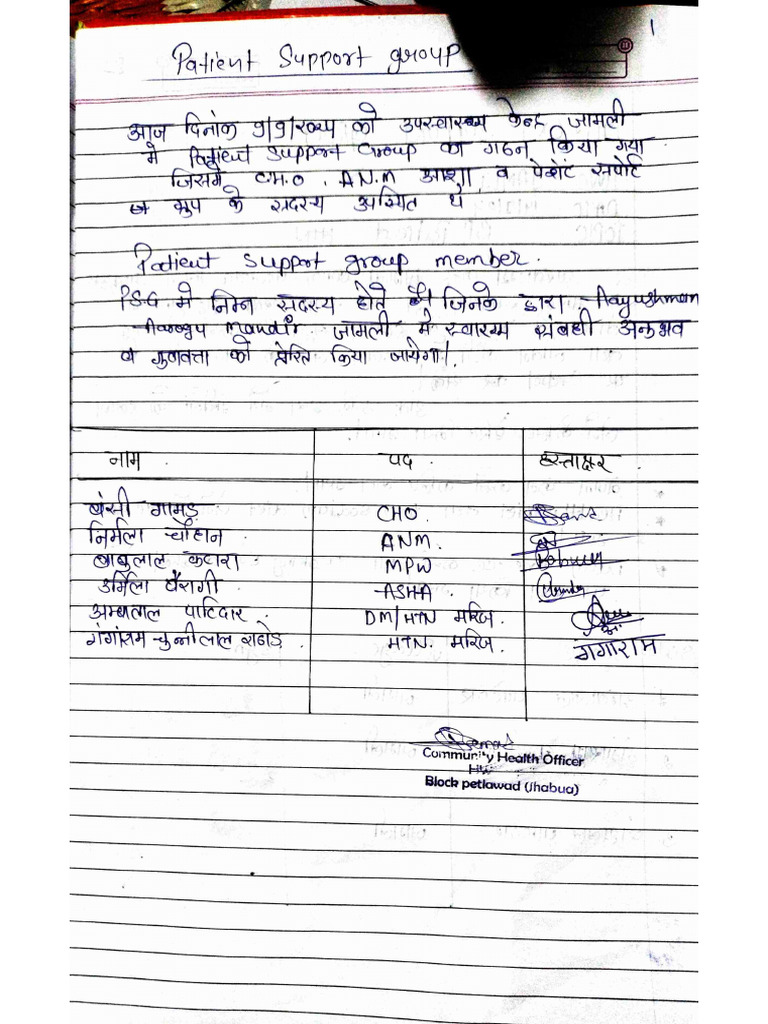 1
Patient Support group
आज दिनांक 9/9/२०२५ को उपस्वास्थ्य केन्द्र जामली
मे Patient Support Group का गठन किया गया
जिसमे C.H.O, A.N.M आशा व पेशेंट सपोर्ट
ग्रुप के सदस्य उपस्थित थे
Patient support group member.
P.S.G मे निम्न सदस्य होते है। जिनके द्वारा Aayushman
Arogya Mandir जामली मे स्वास्थ्य संबधी अनुभव
व गुणवत्ता को प्रेरित किया जायेगा।
नाम पद हस्ताक्षर
बंसी गामड़ CHO
निर्मला चौहान ANM
बाबुलाल कटारा MPW
उर्मिला बैरागी ASHA
अम्बालाल पाटिदार DM/HTN मरिज
गंगाराम चुन्नीलाल राठोड़ HTN. मरिज गंगाराम
Community Health Officer
Block petlawad (Jhabua)